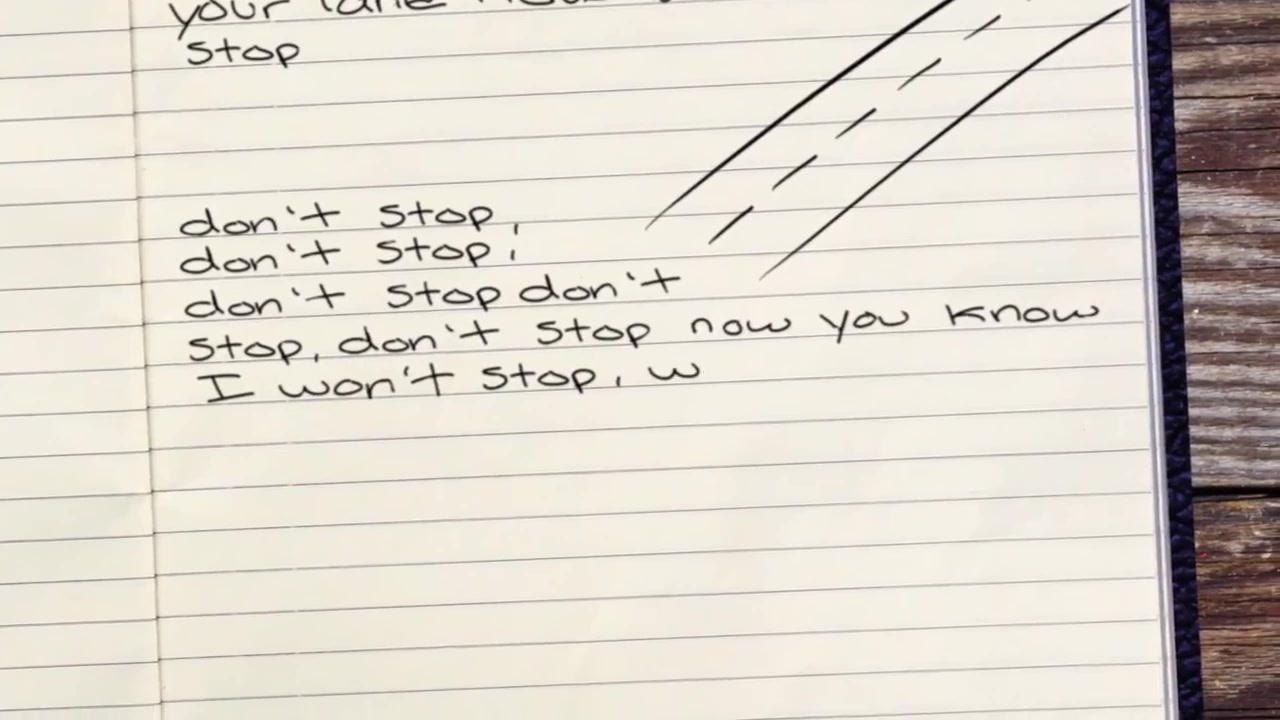 your lane
stop
don't stop,
don't stop,
don't stop don't
stop, don't stop now you know
I won't stop, w